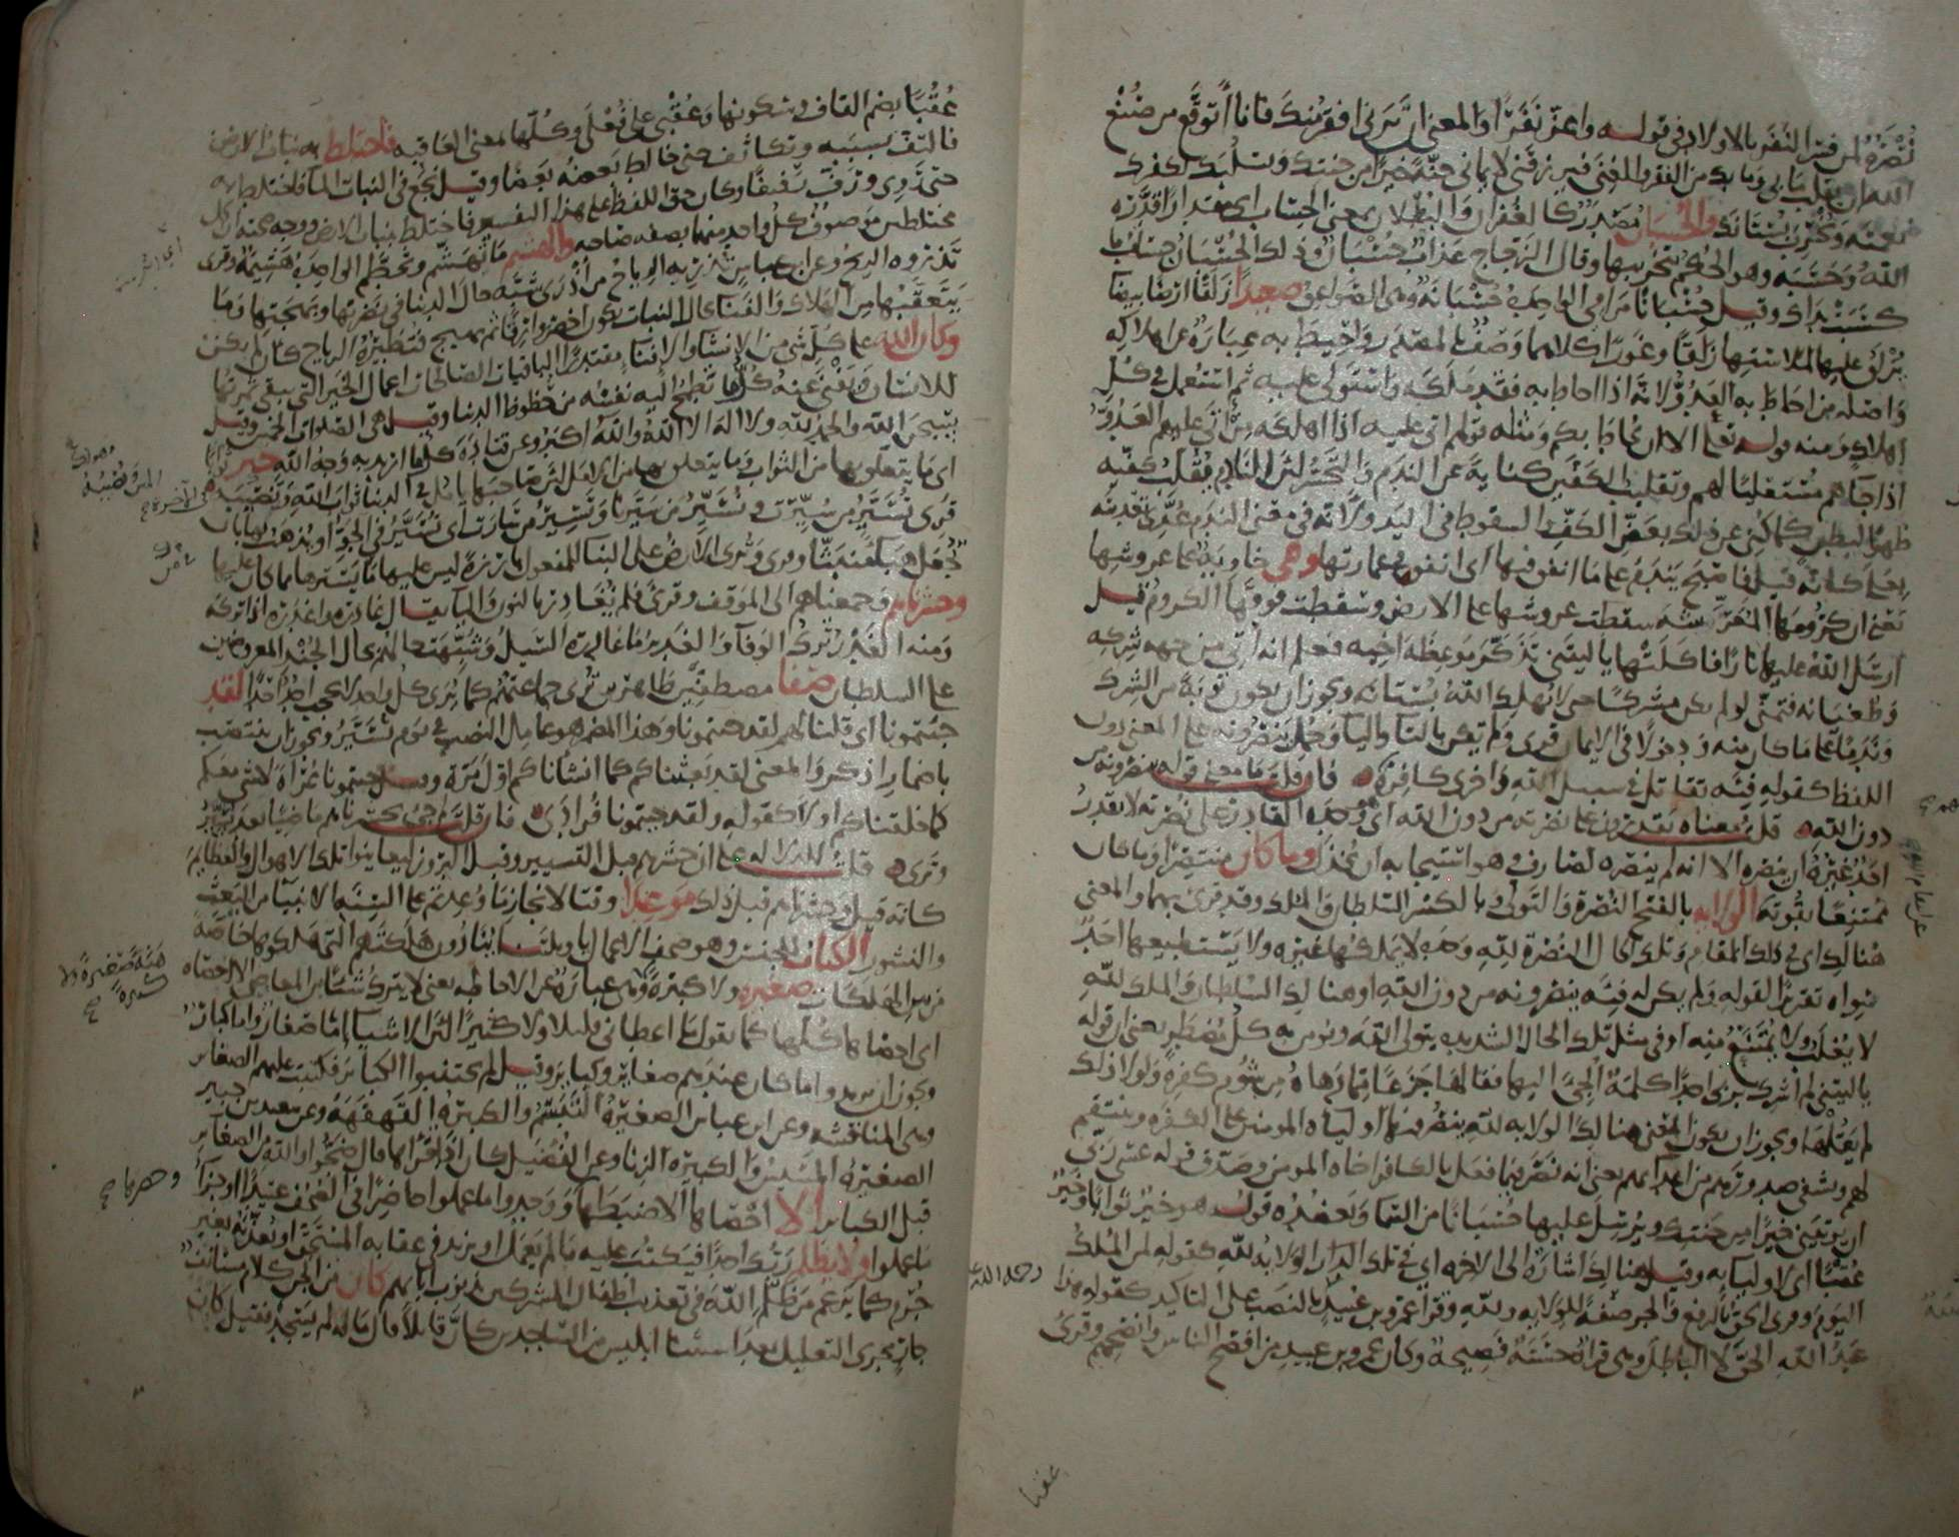 نُصْرَةٌ لمن فسر النفر بالاولاد في قوله واعز نفرا والمعنى ان ترني افقر منك فانا اتوقع من صنع
الله ان يقلب ما بي وما بك من الفقر والغنى فيرزقني لايماني جنة خيرا من جنتك ويسلبك لكفرك
نعمته ويخرب بستانك والحسبان مصدر كالغفران والبطلان بمعنى الحساب اي مقدارا قدره
الله وحسبه وهو الحكم بتخريبها وقال الزجاج عذاب حسبان وذلك الحسبان حساب ما
كسبت يداك وقيل حسبانا مرامي الواحدة حسبانة وهي الصواعق صعيدا زلقا ارضا بيضا
يزلق عليها لملاستها زلقا وغورا كلاهما وصف بالمصدر واحيط به عبارة عن اهلاكه
واصله من احاط به العدو لانه اذا احاط به فقد ملكه واستولى عليه ثم استعمل في كل
اهلاك ومنه قوله تعلى الا ان يحاط بكم ومثله قولهم اتى عليه اذا اهلكه من اتى عليهم العدو
اذا جاهم مستعليا لهم وتقليب الكفين كناية عن الندم والتحسر لان النادم يقلب كفيه
ظهرا لبطن كما كني عن ذلك بعض الكف والسقوط في اليد ولانه في معنى الندم عدي تعديته
بعلى كانه قيل فاصبح يندم على ما انفق فيها اي انفق في عمارتها وهي خاوية على عروشها
يعني ان كرومها المعرشة سقطت عروشها على الارض وسقطت فوقها الكروم قيل
ارسل الله عليها نارا فاكلتها يا ليتني تذكر موعظة اخيه فعلم انه اتي من جهة شركه
وطغيانه فتمنى لو لم يكن مشركا حتى لا يهلك الله بستانه ويجوز ان يكون توبة من الشرك
وندما على ما كان منه ودخولا في الايمان قرئ ولم تكن بالتا واليا وحمل ينصرونه على المعنى دون
اللفظ كقوله فئة تقاتل في سبيل الله واخرى كافرة فان قلت ما معنى قوله ينصرونه من
دون الله قلت معناه يقدرون على نصرته من دون الله اي هو وحده القادر على نصرته لا يقدر
احد غيره ان ينصره الا انه لم ينصره لصارف وهو استيجابه ان يخذل وما كان منتصرا وما كان
ممتنعا بقوته الولاية بالفتح النصرة والتولي وبالكسر السلطان والملك وقد قرئ بهما والمعنى
هنالك اي في ذلك المقام وتلك الحال النصرة لله وحده لا يملكها غيره ولا يستطيعها احد
سواه تقريرا لقوله ولم يكن له فئة ينصرونه من دون الله او هنالك السلطان والملك لله
لا يغلب ولا يمتنع منه او في مثل تلك الحال الشديدة يتولى الله ويؤمن به كل مضطر يعني ان قوله
يا ليتني لم اشرك بربي احدا كلمة الجئ اليها فقالها جزعا مما دهاه من شؤم كفره ولولا ذلك
لم يقلها ويجوز ان يكون المعنى هنالك الولاية لله ينصر فيها اولياه المومنين على الكفرة وينتقم
لهم ويشفي صدورهم من اعدائهم يعني انه نصر فيما فعل بالكافر اخاه المومن وصدق قوله عسى ربي
ان يوتيني خيرا من جنتك ويرسل عليها حسبانا من السما ويعضده قوله هو خير ثوابا وخير
عقبا اي لاوليايه وقيل هنالك اشارة الى الاخرة اي في تلك الدار الولاية لله كقوله لمن الملك
اليوم وقرئ الحق بالرفع والجر صفة للولاية ولله وقرا عمرو بن عبيد بالنصب على التاكيد كقولك هذا
عبد الله الحق لا الباطل وهي قراة حسنة فصيحة وكان عمرو بن عبيد من افصح الناس وانصحهم وقرئ
رحمه الله
عقبا
عقبا بضم القاف وسكونها وعقبى على فعلى وكلها بمعنى العاقبة فاختلط به نبات الارض
فالتف بسببه وتكاثف حتى خالط بعضه بعضا وقيل نجع في النبات الما فاختلط به
حتى روي ورف رفيفا وكان حق اللفظ على هذا التفسير فاختلط بنبات الارض ووجه صحته ان كل
مختلطين موصوف كل واحد منهما بصفة صاحبه والهشيم ما تهشم وتحطم الواحدة هشيمة وقرئ
تذروه الريح وعن ابن عباس تذريه الرياح من اذرى شبه حال الدنيا في نضرتها وبهجتها وما
يتعقبها من الهلاك والفنا بحال النبات يكون اخضر وارفا ثم يهيج فتطيره الرياح كان لم يكن
وكان الله على كل شي من الانشا والافنا مقتدرا الباقيات الصالحات اعمال الخير التي تبقى ثمرتها
للانسان وتفنى عنه كل ما تطمح اليه نفسه من حظوظ الدنيا وقيل هي الصلوات الخمس وقيل
سبحن الله والحمد لله ولا اله الا الله والله اكبر وعن قتادة كل ما اريد به وجه الله خير ثوابا
اي ما يتعلق بها من الثواب وما يتعلق بها من الامل لان صاحبها يامل في الدنيا ثواب الله ونصيبه
قرئ تسير من سيرت ونسير من سيرنا وتسير من سارت اي تسير في الجو او يذهب بها بان
تجعل هبا منبثا وقرئ وترى الارض على البنا للمفعول بارزة ليس عليها ما يسترها مما كان عليها
وحشرناهم وجمعناهم الى الموقف وقرئ فلم نغادر بالنون واليا يقال غادره واغدره اذا تركه
ومنه الغدر ترك الوفا والغدير ما غادره السيل وشبهت حالهم بحال الجند المعروضين
على السلطان صفا مصطفين ظاهرين ترى جماعتهم كما يرى كل واحد لا يحجب احد احدا لقد
جئتمونا اي قلنا لهم لقد جئتمونا وهذا المضمر هو عامل النصب في يوم نسير ويجوز ان ينتصب
باضمار اذكر والمعنى لقد بعثناكم كما انشاناكم اول مرة وقيل جئتمونا عراة لا شي معكم
كما خلقناكم اولا كقوله ولقد جئتمونا فرادى فان قلت لم جئ بحشرناهم ماضيا بعد نسير
وترى قلت للدلالة على ان حشرهم قبل التسيير وقبل البروز ليعاينوا تلك الاهوال والعظايم
كانه قيل وحشرناهم قبل ذلك موعدا وقتا لانجاز ما وعدتم على السنة الانبيا من البعث
والنشور الكتاب للجنس وهو صحف الاعمال يا ويلتنا ينادون هلكتهم التي هلكوها خاصة
من بين الهلكات صغيرة ولا كبيرة وهي عبارة عن الاحاطة يعني لا يترك شيئا من المعاصي الا احصاه
اي احصاها كلها كما تقول ما اعطاني قليلا ولا كثيرا لان الاشيا اما صغار واما كبار
ويجوز ان يريد واما كان عندهم صغاير وكباير وقيل لم يجتنبوا الكباير فكتبت عليهم الصغاير
وهي المناقشة وعن ابن عباس الصغيرة التبسم والكبيرة القهقهة وعن سعيد بن جبير
الصغيرة المسيس والكبيرة الزنا وعن الفضيل كان اذا قراها قال ضجوا والله من الصغاير
قبل الكباير الا احصاها الا ضبطها ووجدوا ما عملوا حاضرا في الصحف عتيدا او جزا
ما عملوا ولا يظلم ربك احدا فيكتب عليه ما لم يعمل او يزيد في عقابه المستحق او يعذبه بغير
جرم كما يزعم من ظلم الله في تعذيب اطفال المشركين بذنوب ابايهم كان من الجن كلام مستانف
جار مجرى التعليل بعد استثنا ابليس من الساجدين كان قايلا قال ما له لم يسجد فقيل كان
هنة صغيرة ولا
كبيرة